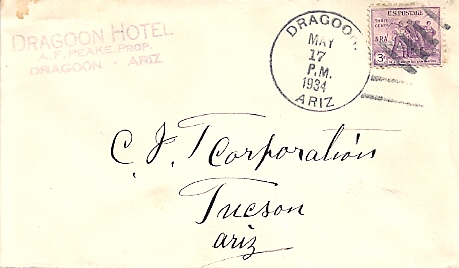 DRAGOON HOTEL
A. F. PEAKE, PROP.
DRAGOON - ARIZ
DRAGOON
MAY
17
P.M.
1934
ARIZ
U.S. POSTAGE
THREE CENTS
3¢
C. J. T Corporation
Tucson
ariz